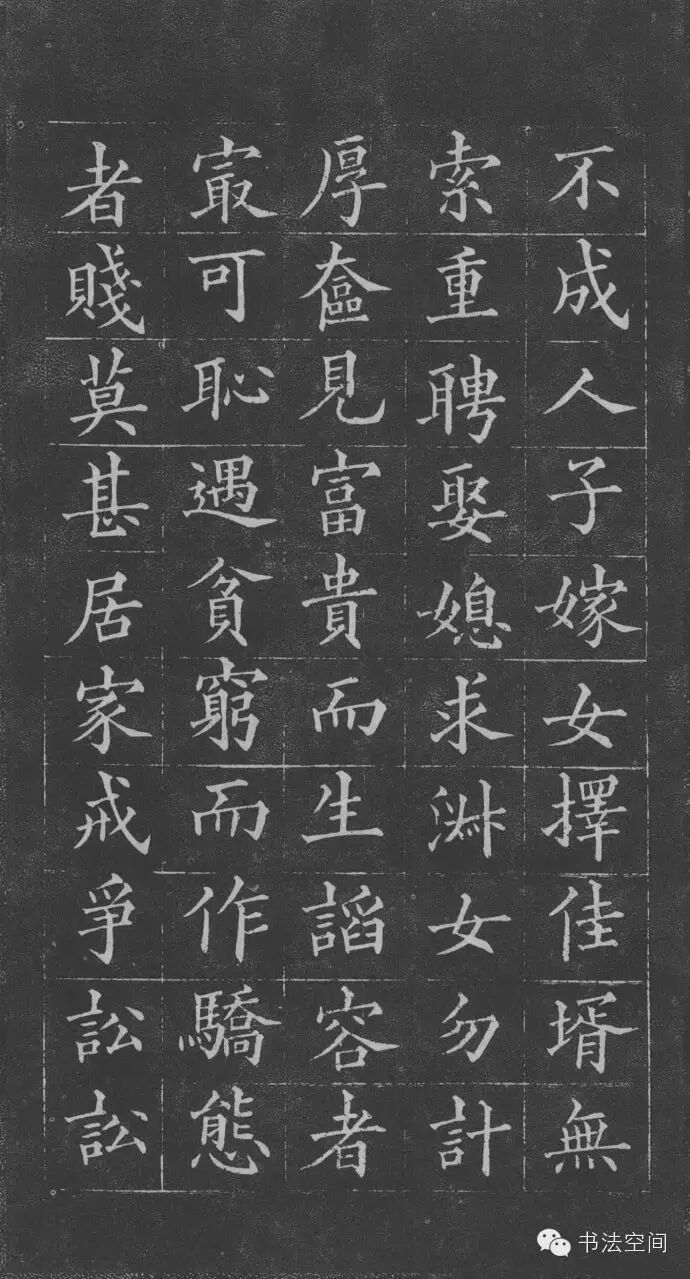 不成人子嫁女擇佳壻無
索重聘娶媳求淑女勿計
厚奩見富貴而生諂容者
㝡可恥遇貧窮而作驕態
者賤莫甚居家戒爭訟訟
书法空间